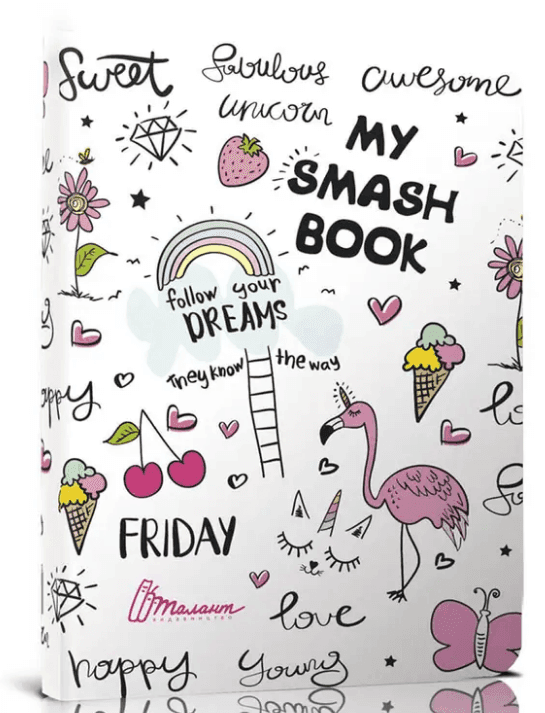 Sweet
fabulous
awesome
unicorn
MY
SMASH
BOOK
follow your
DREAMS
They know the way
happy
FRIDAY
Талант
ВИДАВНИЦТВО
love
happy
young